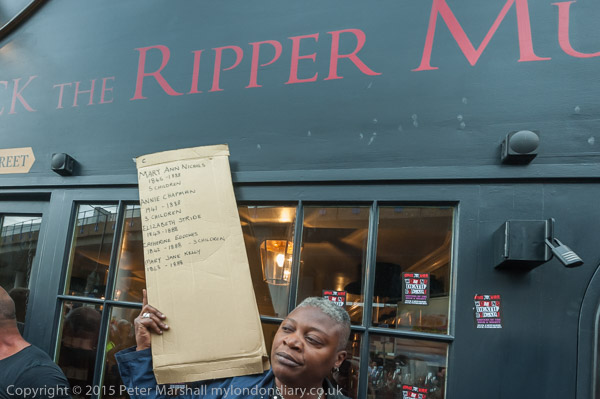 CK THE RIPPER MU
STREET
MARY ANN NICHOLS
1845 - 1888
5 CHILDREN
ANNIE CHAPMAN
1841 - 1888
3 CHILDREN
ELIZABETH STRIDE
1843 - 1888
CATHERINE EDDOWES
1842 - 1888 - 3 CHILDREN
MARY JANE KELLY
1863 - 1888
DEATH
Copyright © 2015 Peter Marshall mylondondiary.co.uk